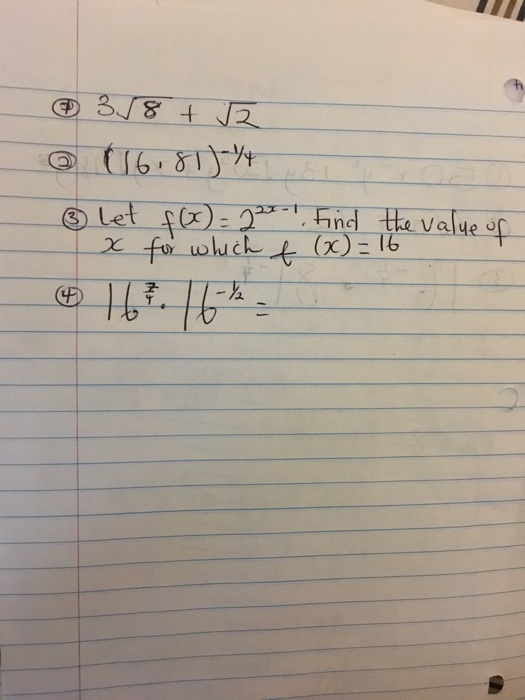 ① 3√8 + √2
② (16.81)^-1/4
③ Let f(x) = 2^2x-1. Find the value of
x for which f (x) = 16
④ 16^7/4 . 16^-1/2 =